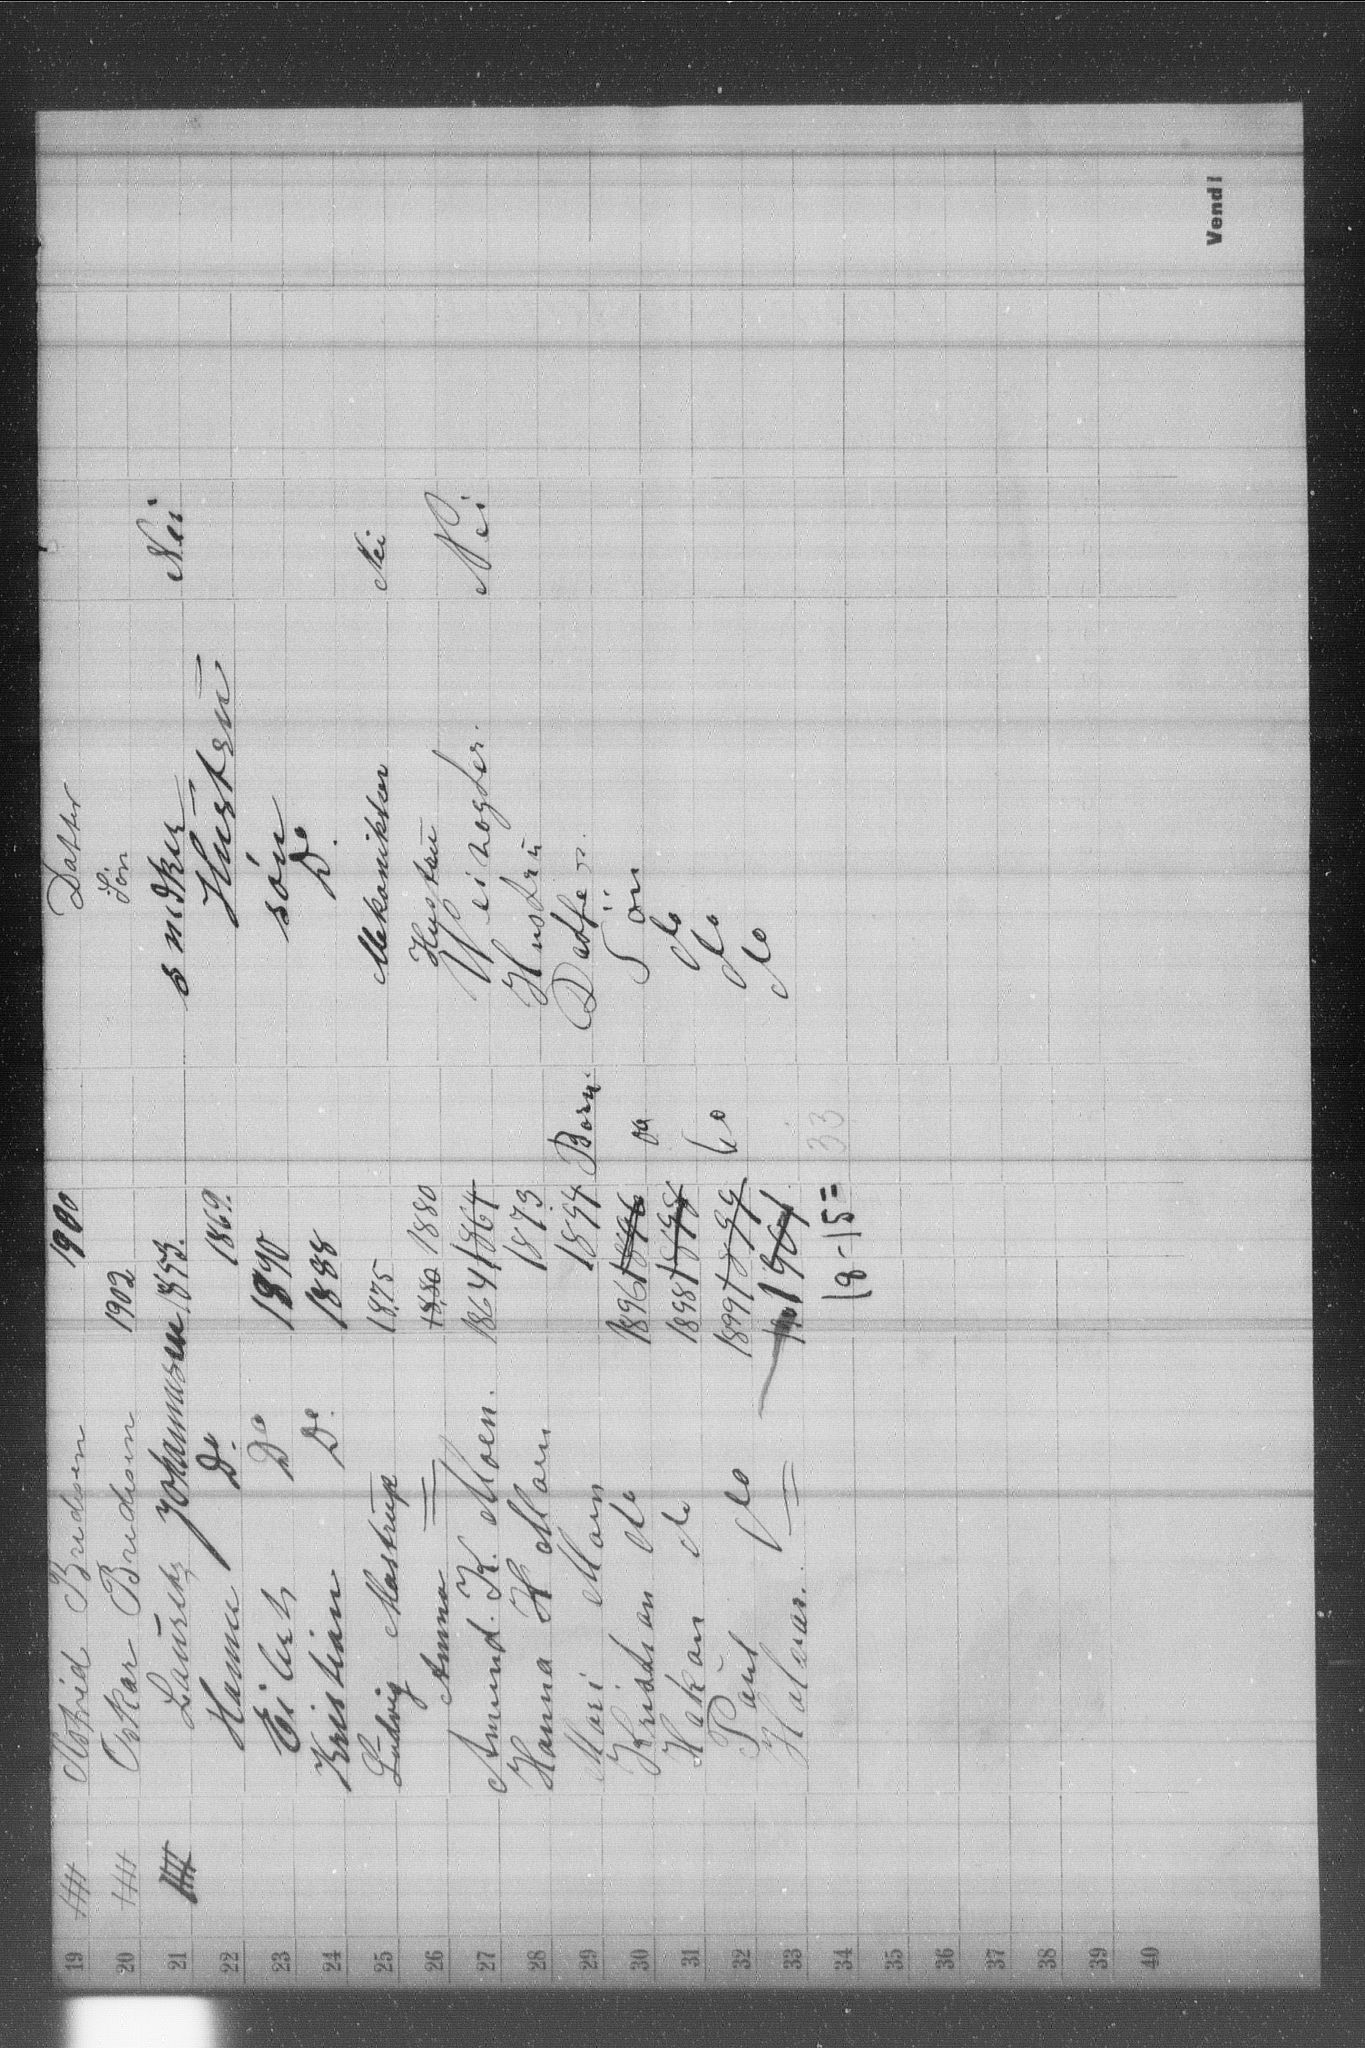 19 ## Astrid Brudisen 1900 Datter
20 ## Oskar Brudisen 1902 Sön
21 ## Laurits Johannesen 1893. Nei
22 Hanne Do 1869. Hustru
23 Eilert Do 1890 sön
24 Kristian Do. 1888 Do.
25 Ludvig Mastrup 1875 Mekaniker Nei
26 Anna = 1880 1880 Hustru
27 Amund. K. Moen. 1864 1864 Nei
28 Hanna H Moen 1873 Hustru
29 Mari Moen 1894 Born. Datter
30 Kristian do 1896 1896 Sön
31 Hakon do 1898 1898 do
32 Paul do 1899 1899 do do
33 Halvar. = 1901 do
34 18-15= 33
35
36
37
38
39
40
Vend!